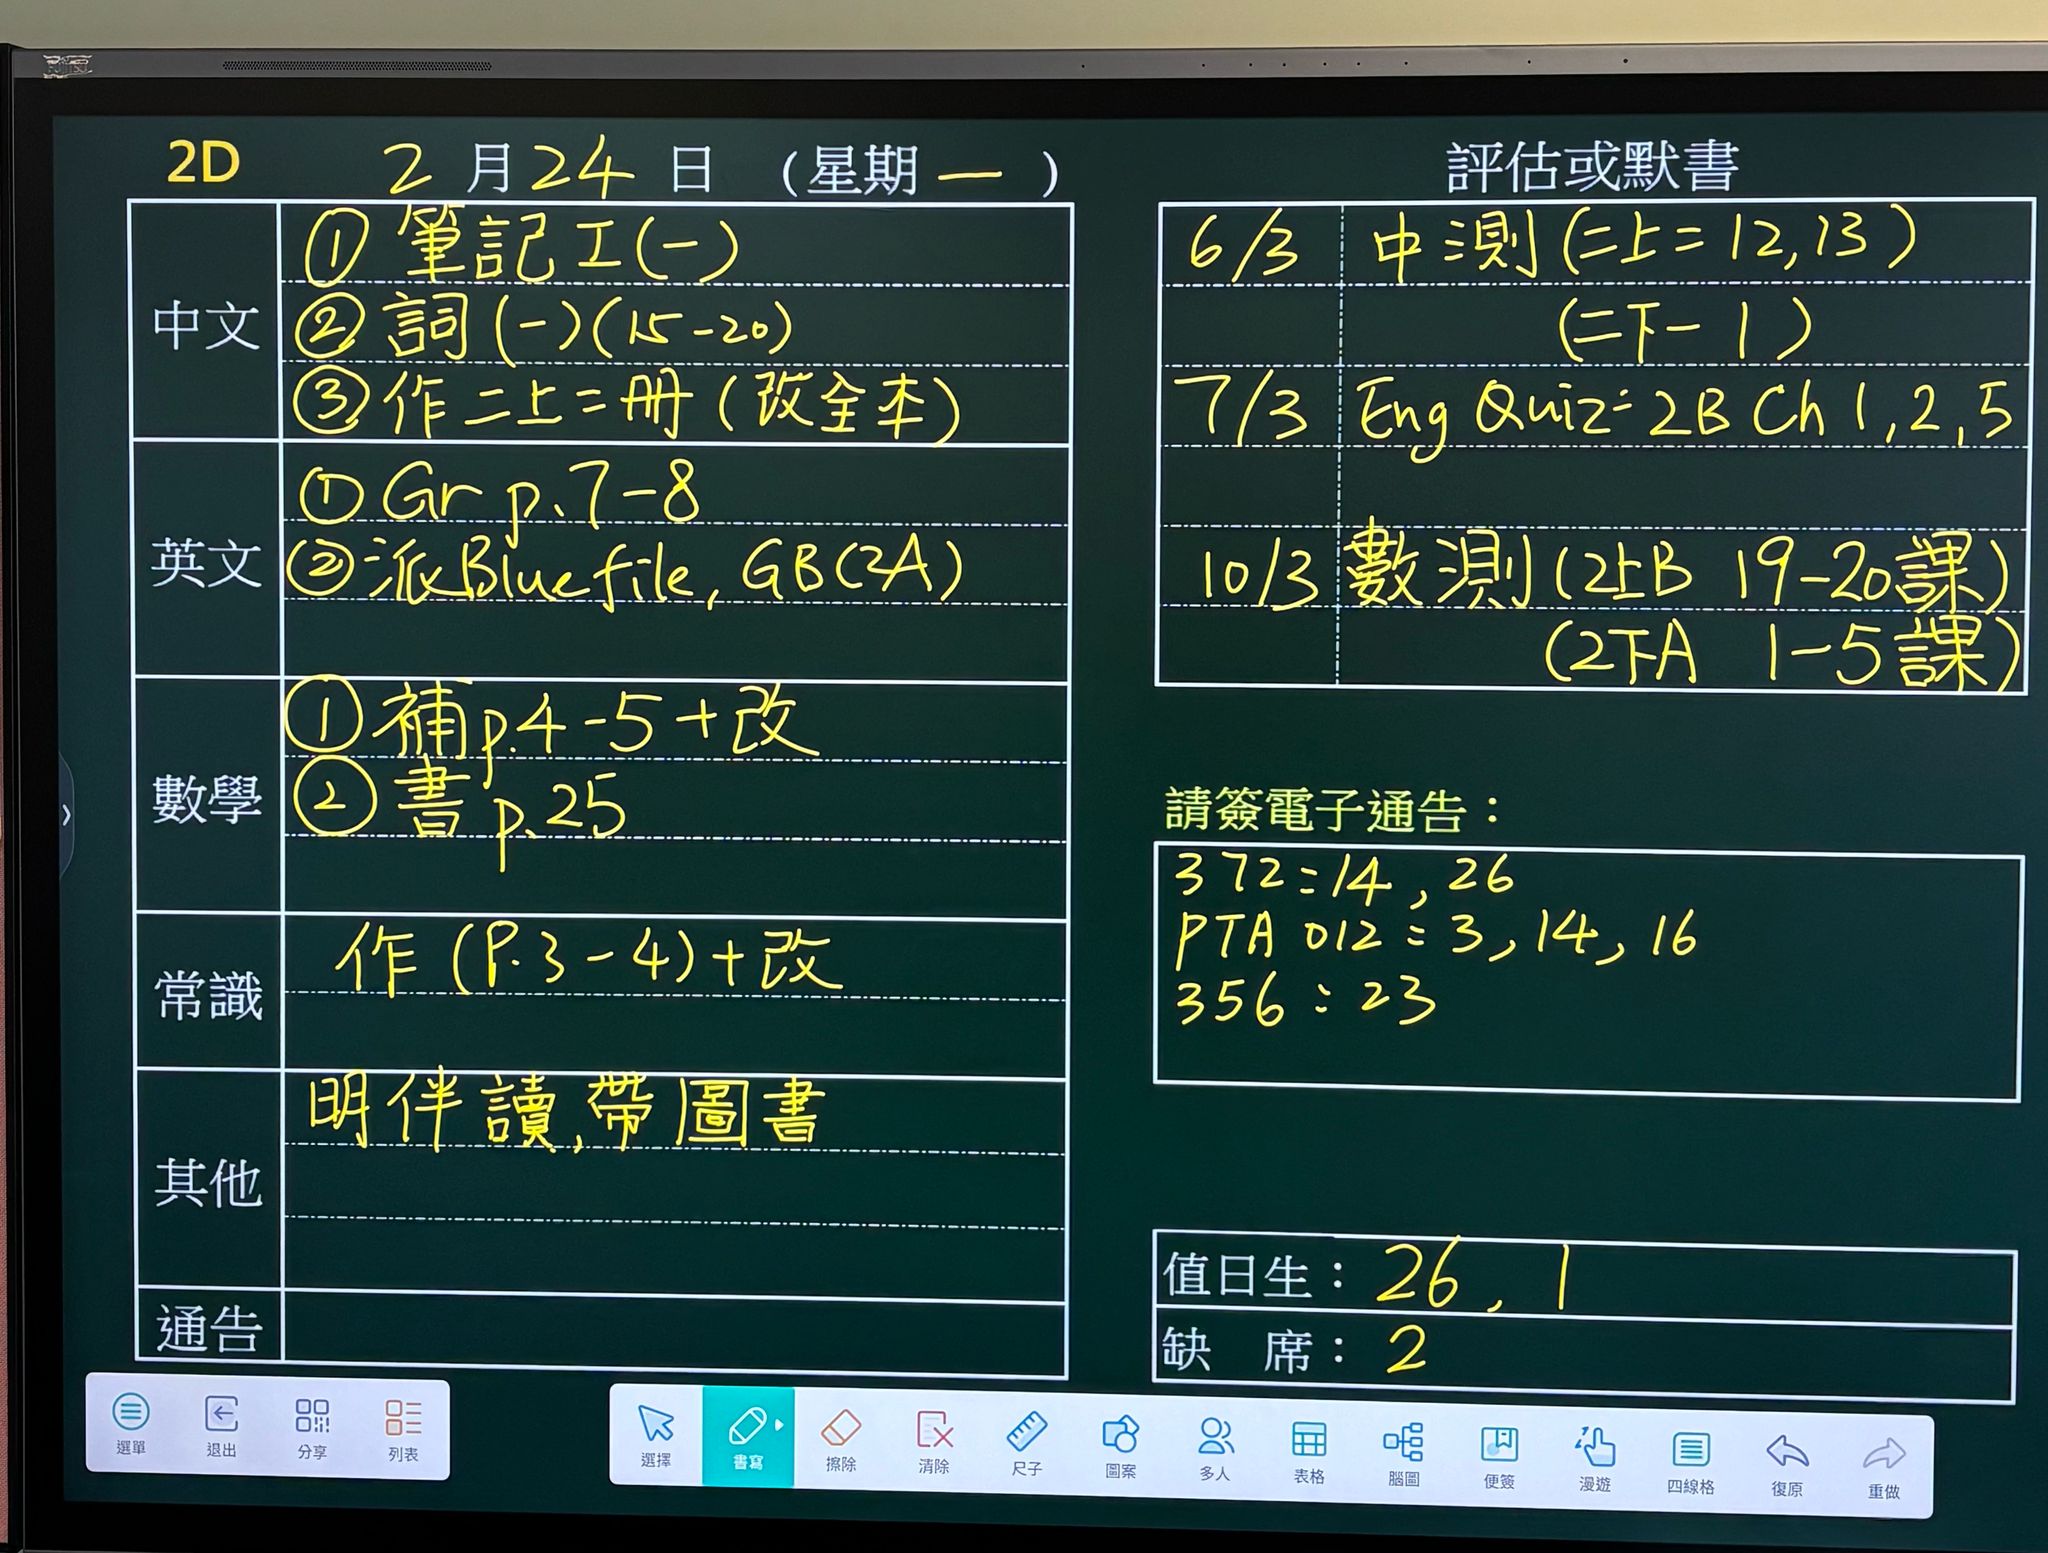 2D 2月24日 (星期一)
中文
① 筆記工(一)
② 詞(一)(15-20)
③ 作二上二冊(改全本)
英文
① Gr p.7-8
② 派Blue file, GB(2A)
數學
① 補p.4-5+改
② 書p.25
常識
作(P.3-4)+改
其他
明伴讀,帶圖書
通告
評估或默書
6/3 中測(二上二 12,13)
(二下一 1)
7/3 Eng Quiz: 2B Ch 1,2,5
10/3 數測(2上B 19-20課)
(2下A 1-5課)
請簽電子通告:
372:14, 26
PTA 012:3, 14, 16
356:23
值日生:26, 1
缺席:2
選單 退出 分享 列表
選擇 書寫 擦除 清除 尺子 圖案 多人 表格 腦圖 便簽 漫遊 四線格 復原 重做